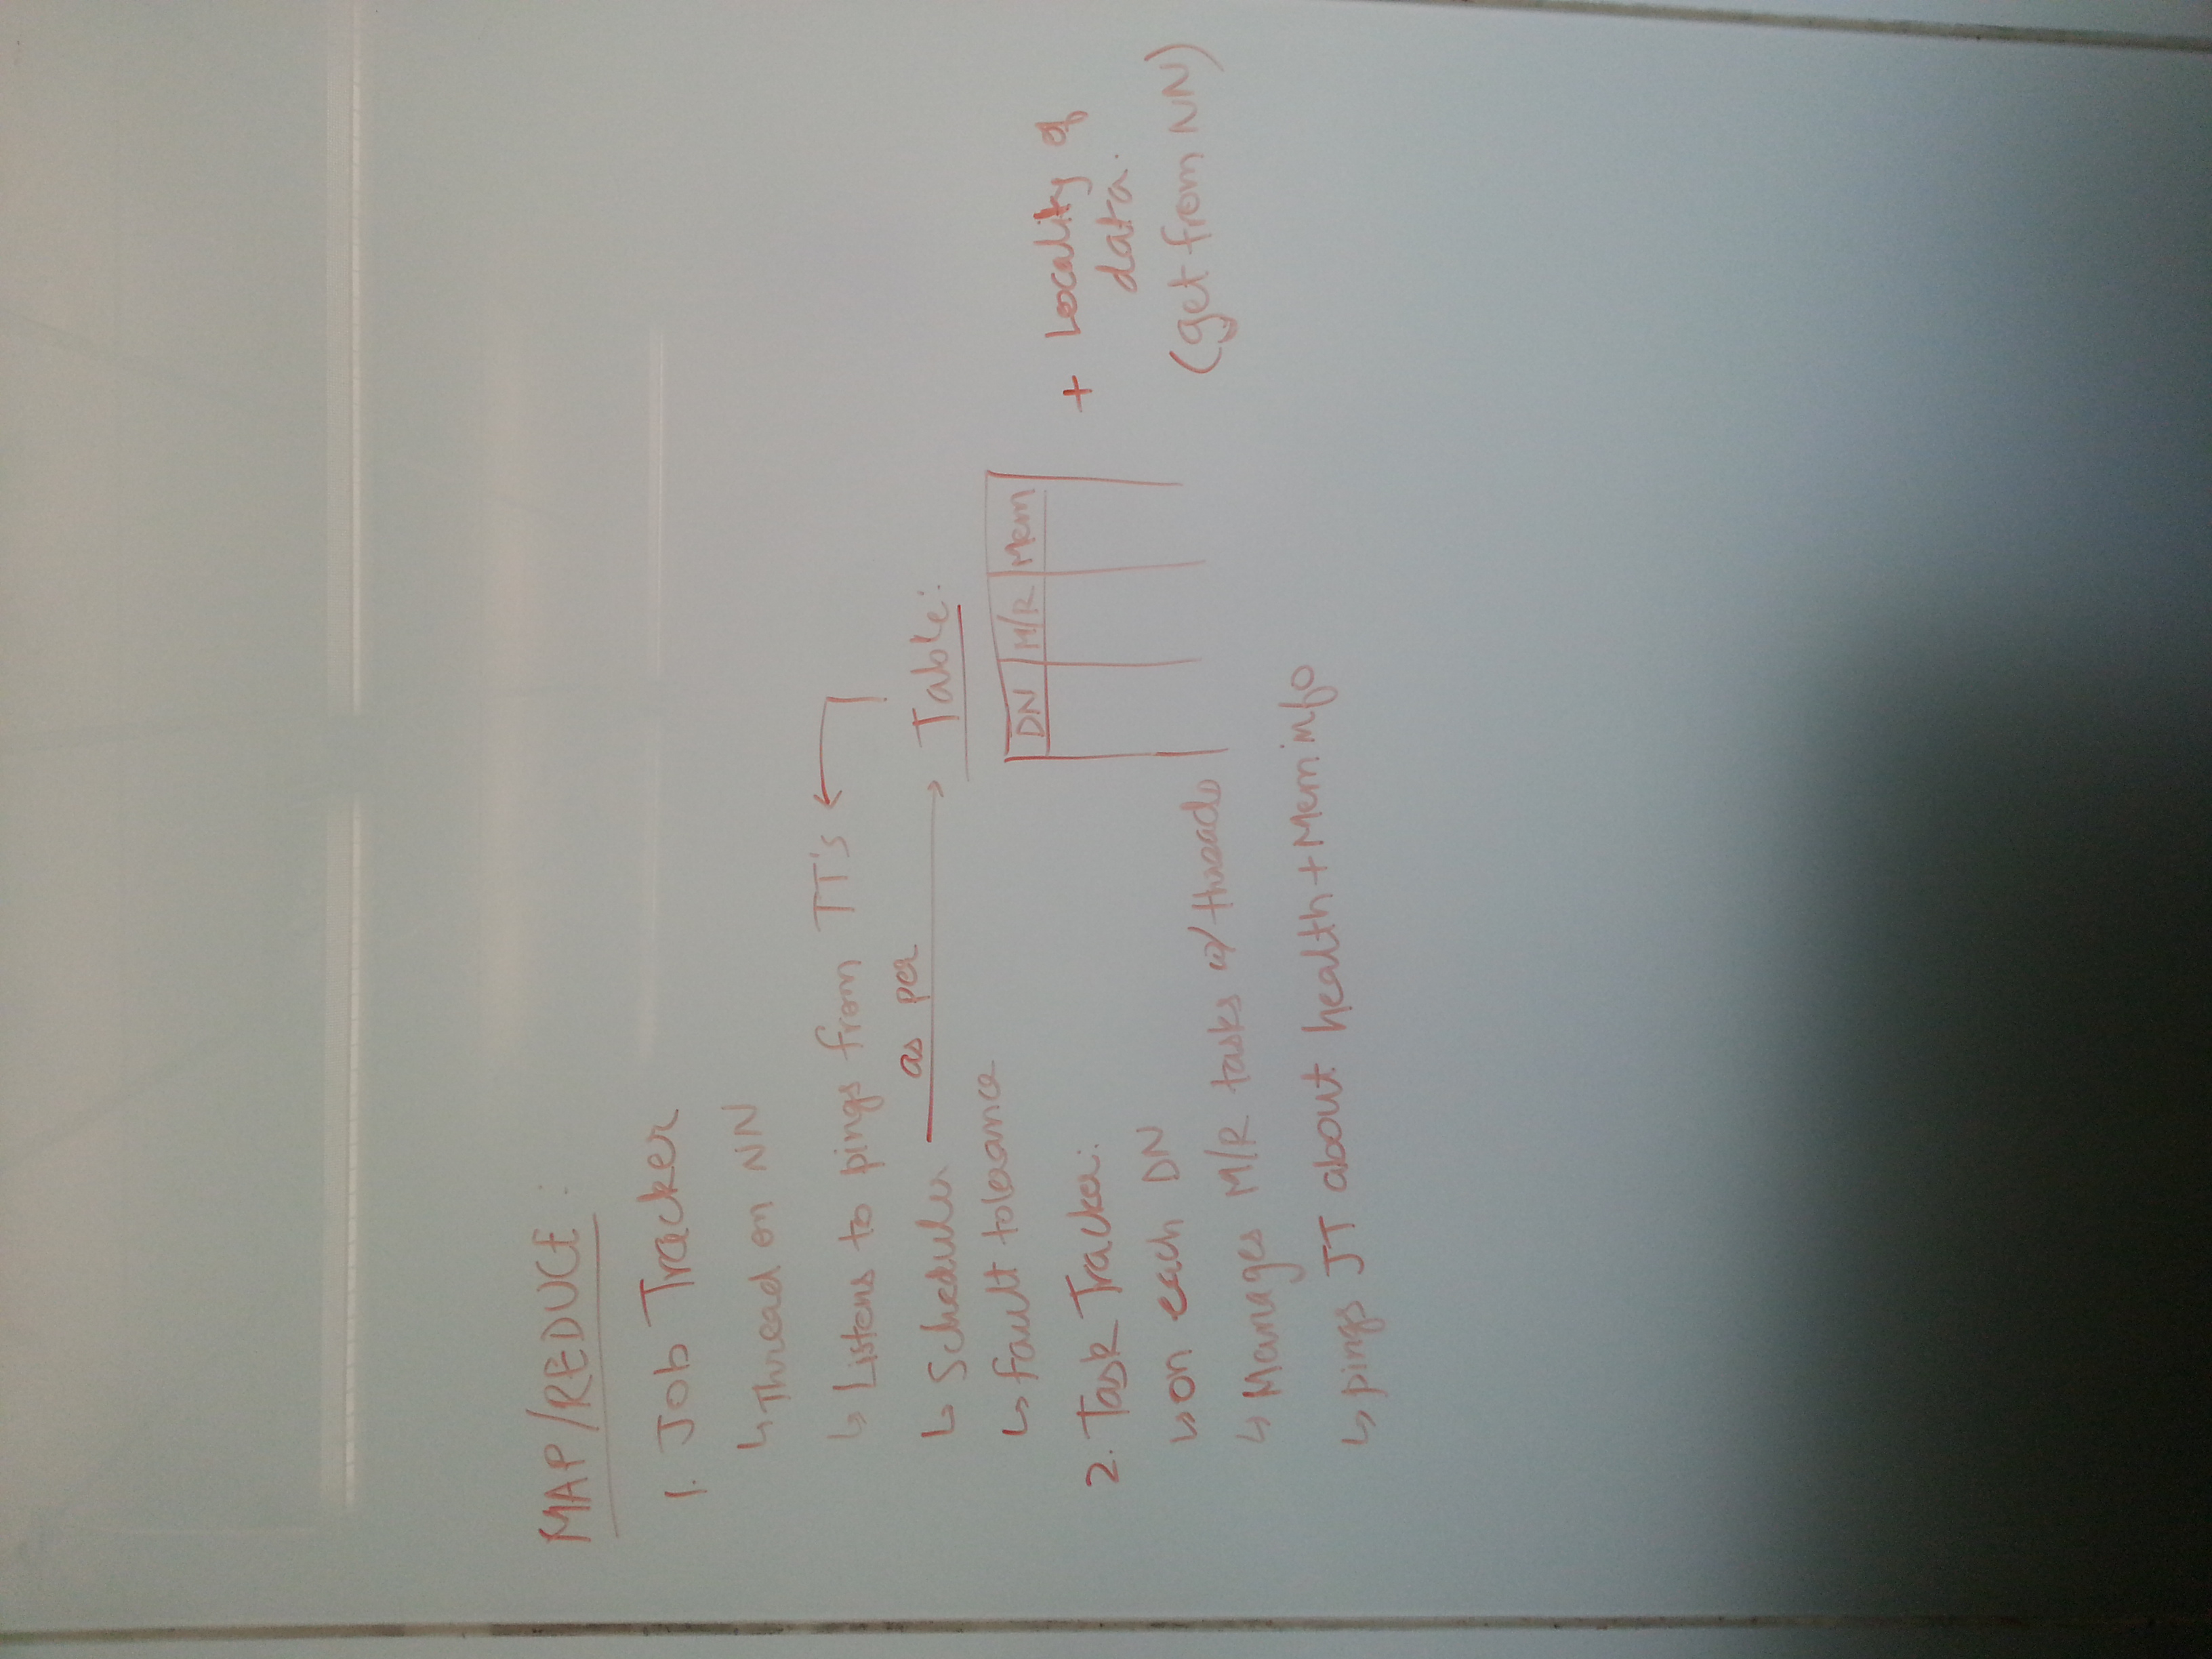 MAP/REDUCE:
1. Job Tracker
↳ Thread on NN
↳ Listens to pings from TT's
↳ Scheduler as per Table:
↳ fault tolerance
DN M/R Mem
+ Locality of
data.
(get from NN)
2. Task Tracker:
↳ on each DN
↳ Manages M/R tasks w/ threads
↳ pings JT about health + Mem info